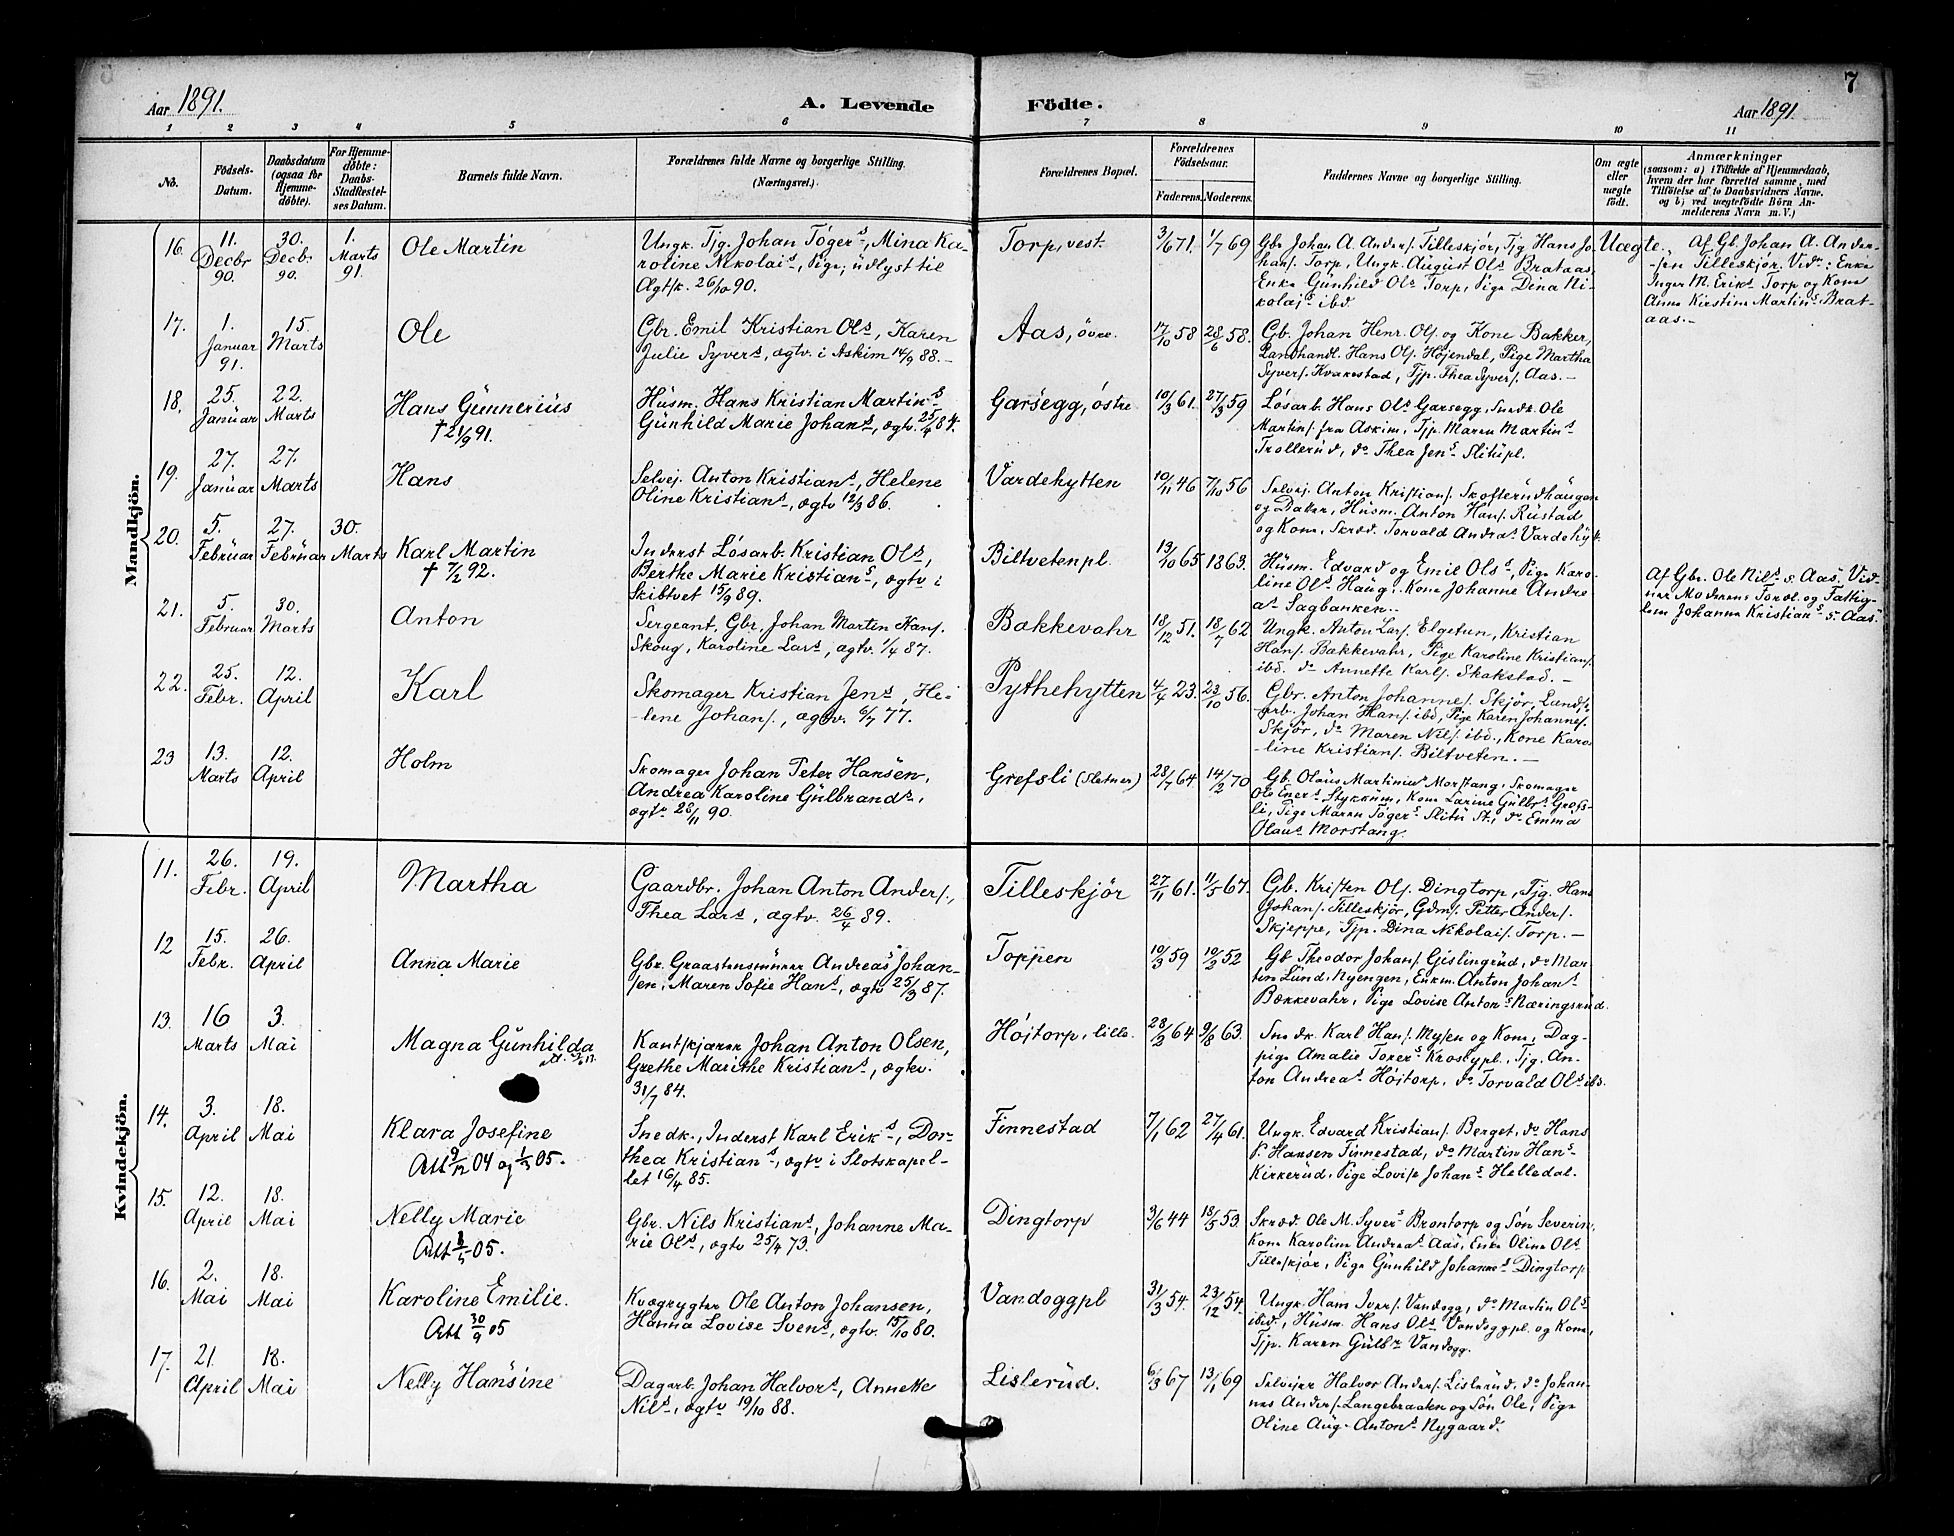 7
Aar 1891.
A. Levende
Födte.
Aar 1891.
1 2 3 4 5 6 7 8 9 10 11
No.
Födsels-
Datum.
Daabsdatum
(ogsaa for
Hjemme-
döbte).
For Hjemme-
döbte:
Daabs-
Stadfæstel-
ses Datum.
Barnets fulde Navn.
Forældrenes fulde Navne og borgerlige Stilling.
(Næringsvei.)
Forældrenes Bopæl.
Forældrenes
Födselsaar.
Faderens. Moderens.
Faddernes Navne og borgerlige Stilling.
Om ægte
eller
uægte
födt.
Anmærkninger
(saasom: a) i Tilfælde af Hjemmedaab,
hvem der har forrettet samme, med
Tilföielse af to Daabsvidners Navne.
og b) ved uægtefödte Börn An-
melderens Navn m. V.)
Mandkjön.
16.
11.
Decbr
90.
30.
Decbr
90.
1.
Marts
91.
Ole Martin
Ungk. Tjg. Johan Tögers, Mina Ka-
roline Nikolais, Pige; udlyst til
Ægtsk. 26/10 90.
Torp, vest.
3/6 71. 1/7 69
Gbr. Johan A. Anders. Tilleskjör, Tjg Hans Jo-
hans. Torp, Ungk. August Ols Brataas,
Enke Gunhild Ols Torp, Pige Dina Ni-
kolajs ibd
Uægte.
Af Gb. Johan A. Ander-
-sen Tilleskjör. Vidr: Enke
Inger M. Eriks Torp og Kone
Anna Kirstine Martins, Brat-
aas.-
17.
1.
Januar
91.
15.
Marts
Ole
Gbr. Emil Kristian Ols, Karen
Julie Syvers, ægtv. i Askim 14/9 88.-
Aas, övre.
17/10 58 28/6 58.
Gb. Johan Henr. Ols. og Kone Bakker,
Landhandl. Hans Ols. Höjendal, Pige Martha
Syvers. Kvakestad, Tjp. Thea Syvers. Aas.-
18.
25.
Januar
22.
Marts
Hans Gunnerius
† 21/9 91.
Husm. Hans Kristian Martins
Gunhild Marie Johans, ægtv. 25/4 84.
Garsegg, östre
10/3 61. 27/3 59
Lösarb. Hans Ols Garsegg, Snedk. Ole
Martins. fra Askim, Tjp. Maren Martins
Trollerud, do Thea Jens Slitupl.
19.
27.
Januar
27.
Marts
Hans
Selvej. Anton Kristians, Helene
Oline Kristians, ægtv 12/3 86.
Vardehytten
10/11 46 7/10 56
Selvej. Anton Kristians. Skofterudhaugen
og Datter, Husm. Anton Hans. Rustad
og Kone, Skræd. Torvald Andreas Vardehyt.
20.
5.
Februar
27.
Februar
30.
Marts
Karl Martin
† 7/2 92.
Inderst Lösarb. Kristian Ols,
Berthe Marie Kristians, ægtv i
Skibtvet 15/9 89.
Biltvetenpl.
13/10 65 1863.
Husm. Edvard og Emil Olss, Pige Karo-
line Ols Haug, Kone Johanne Andre
as Sagbanken.
Af Gbr. Ole Nils s. Aas. Vid-
ner Moderens Foræl. og Fattig-
lem Johanne Kristians s. Aas.
21.
5.
Februar
30.
Marts
Anton
Sergeant, Gbr. Johan Martin Hans.
Skoug, Karoline Lars, ægtv. 1/4 87.
Bækkevahr
18/12 51. 18/7 62
Ungk. Anton Lars. Elgetun, Kristian
Hans. Bækkevahr, Pige Karoline Kristians.
ibd. do Annette Karls. Skakstad.-
22.
25.
Febr.
12.
April
Karl
Skomager Kristian Jens, He-
-lene Johans., ægtv. 6/7 77.
Pythehytten
4/4 23. 23/10 56.
Gbr. Anton Johannes. Skjör, Lands.
arb. Johan Hans. ibd, Pige Karen Johannes.
Skjör, do Maren Nils. ibd., Kone Karo-
-line Kristians. Biltveten.-
23
13.
Marts
12.
April
Holm
Skomager Johan Peter Hansen,
Andrea Karoline Gulbrands,
ægtv 28/11 90.
Grefsli (Sletner)
28/7 64. 14/2 70
Gb. Olaus Martinius Morstang, Skomager
Ole Eners Stykkum, Kone Larine Gulbrs Grefs-
li, Pige Maren Tögers Slitu St., do Emma
Olaus Morstang.
Kvindekjön.
11.
26.
Febr.
19.
April
Martha
Gaardbr. Johan Anton Anders.,
Thea Lars, ægtv. 26/4 89.
Tilleskjör
27/11 61. 11/5 67.
Gb. Kristen Ols. Dingtorp, Tjg. Hans
Johans. Tilleskjör, Gdms. Petter Anders.
Skjeppe, Tjp. Dina Nikolais. Torp.-
12
15.
Febr.
26.
April
Anna Marie
Gbr. Graastensminer Andreas Johan-
sen, Maren Sofie Hans, ægtv 25/3 87.
Toppen
10/3 59 19/2 52
Gb Theodor Johans. Gislingrud, do Mar-
tin Lund, Nyengen, Enkm. Anton Johans
Bækkevahr, Pige Lovise Antons Næringsrud.
13.
16
Marts
3.
Mai
Magna Gunhilda
Kantskjærer Johan Anton Olsen,
Grethe Marithe Kristians, ægtv.
31/7 84.
Höjtorp, lille.
28/2 64 9/8 63.
Snedr. Karl Hans. Mysen og Kone, Dag-
pige Amalie Torers Krosbypl., Tjg. An-
ton Andreas Höjtorp, do Torvald Ols ibd.
14.
3.
April
18.
Mai
Klara Josefine
Att 9/12 04 og 1/3 05.
Snedk., Inderst Karl Eriks, Dor-
thea Kristians, ægtv i Slotskapel-
let 16/4 85.
Finnestad
7/1 62 27/4 61.
Ungk. Edvard Kristians. Berget, do Hans
P. Hansen Finnestad, do Martin Hans
Kirkerud, Pige Lovise Johans Helledal.
15.
12.
April
18.
Mai
Nelly Marie
Att 3/5 05.
Gbr. Nils Kristians, Johanne Ma-
rie Ols, ægtv 25/4 73.
Dingtorp
3/6 44 18/5 53.
Skræd. Ole M. Syvers Brontorp og Sön Severin,
Kone Karoline Andreas Aas, Enke Oline Ols
Tilleskjör, Pige Gunhild Johannes Dingtorp
16.
2.
Mai
18.
Mai
Karoline Emilie.
Att 30/9 05
Kvægrygter Ole Anton Johansen,
Hanna Lovise Svens, ægtv. 15/10 80.
Vandoggpl
31/3 54. 23/12 54.
Ungk. Hans Ivers. Vandogg, do Martin Ols
ibd, Husm. Hans Ols Vandoggpl. og Kone,
Tjp. Karen Gulbr Vandogg.
17.
21.
April
18.
Mai
Nelly Hansine
Dagarb. Johan Halvors, Annette
Nils, ægtv 19/10 88.
Lislerud.
6/3 67 13/1 69
Selvejer Halvor Anders. Lislerud, do Johan-
nes Anders. Langebraaten og Sön Ole, Pige
Oline Aug. Antons Nygaard.